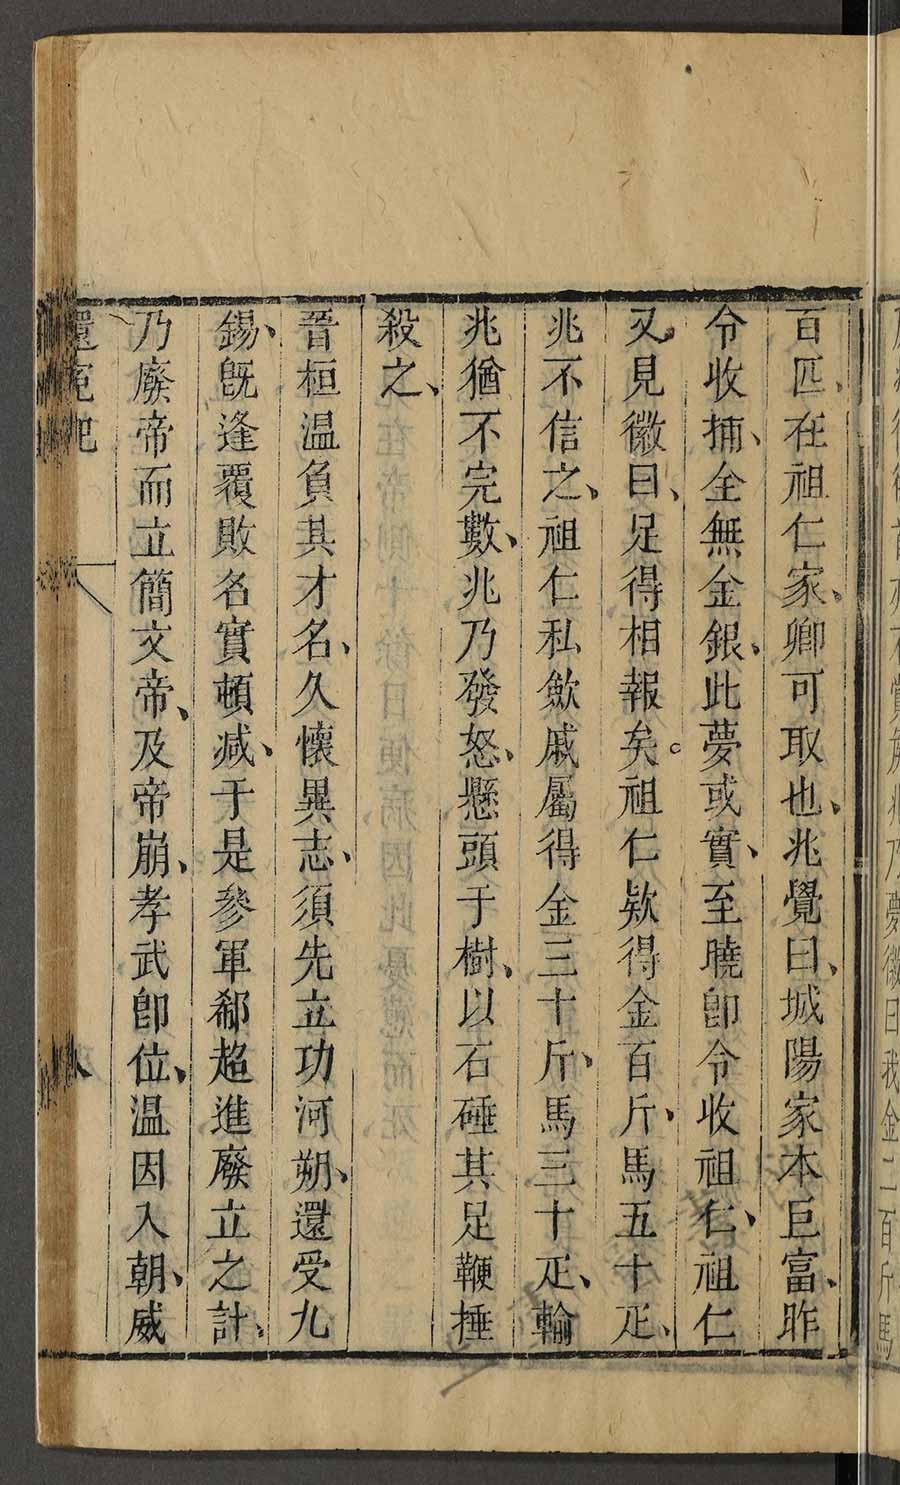 夢徵曰我金二百斤馬
百匹在祖仁家卿可取也兆覺曰城陽家本巨富昨
令收捕全無金銀此夢或實至曉卽令收祖仁祖仁
又見徽曰足得相報矣祖仁欵得金百斤馬五十疋
兆不信之祖仁私斂戚屬得金三十斤馬三十疋輸
兆猶不完數兆乃發怒懸頭于樹以石硾其足鞭捶
殺之
晉桓温負其才名久懷異志須先立功河朔還受九
錫旣逢覆敗名實頓減于是參軍郗超進廢立之計
乃廢帝而立簡文帝及帝崩孝武卽位温因入朝威
還冤記